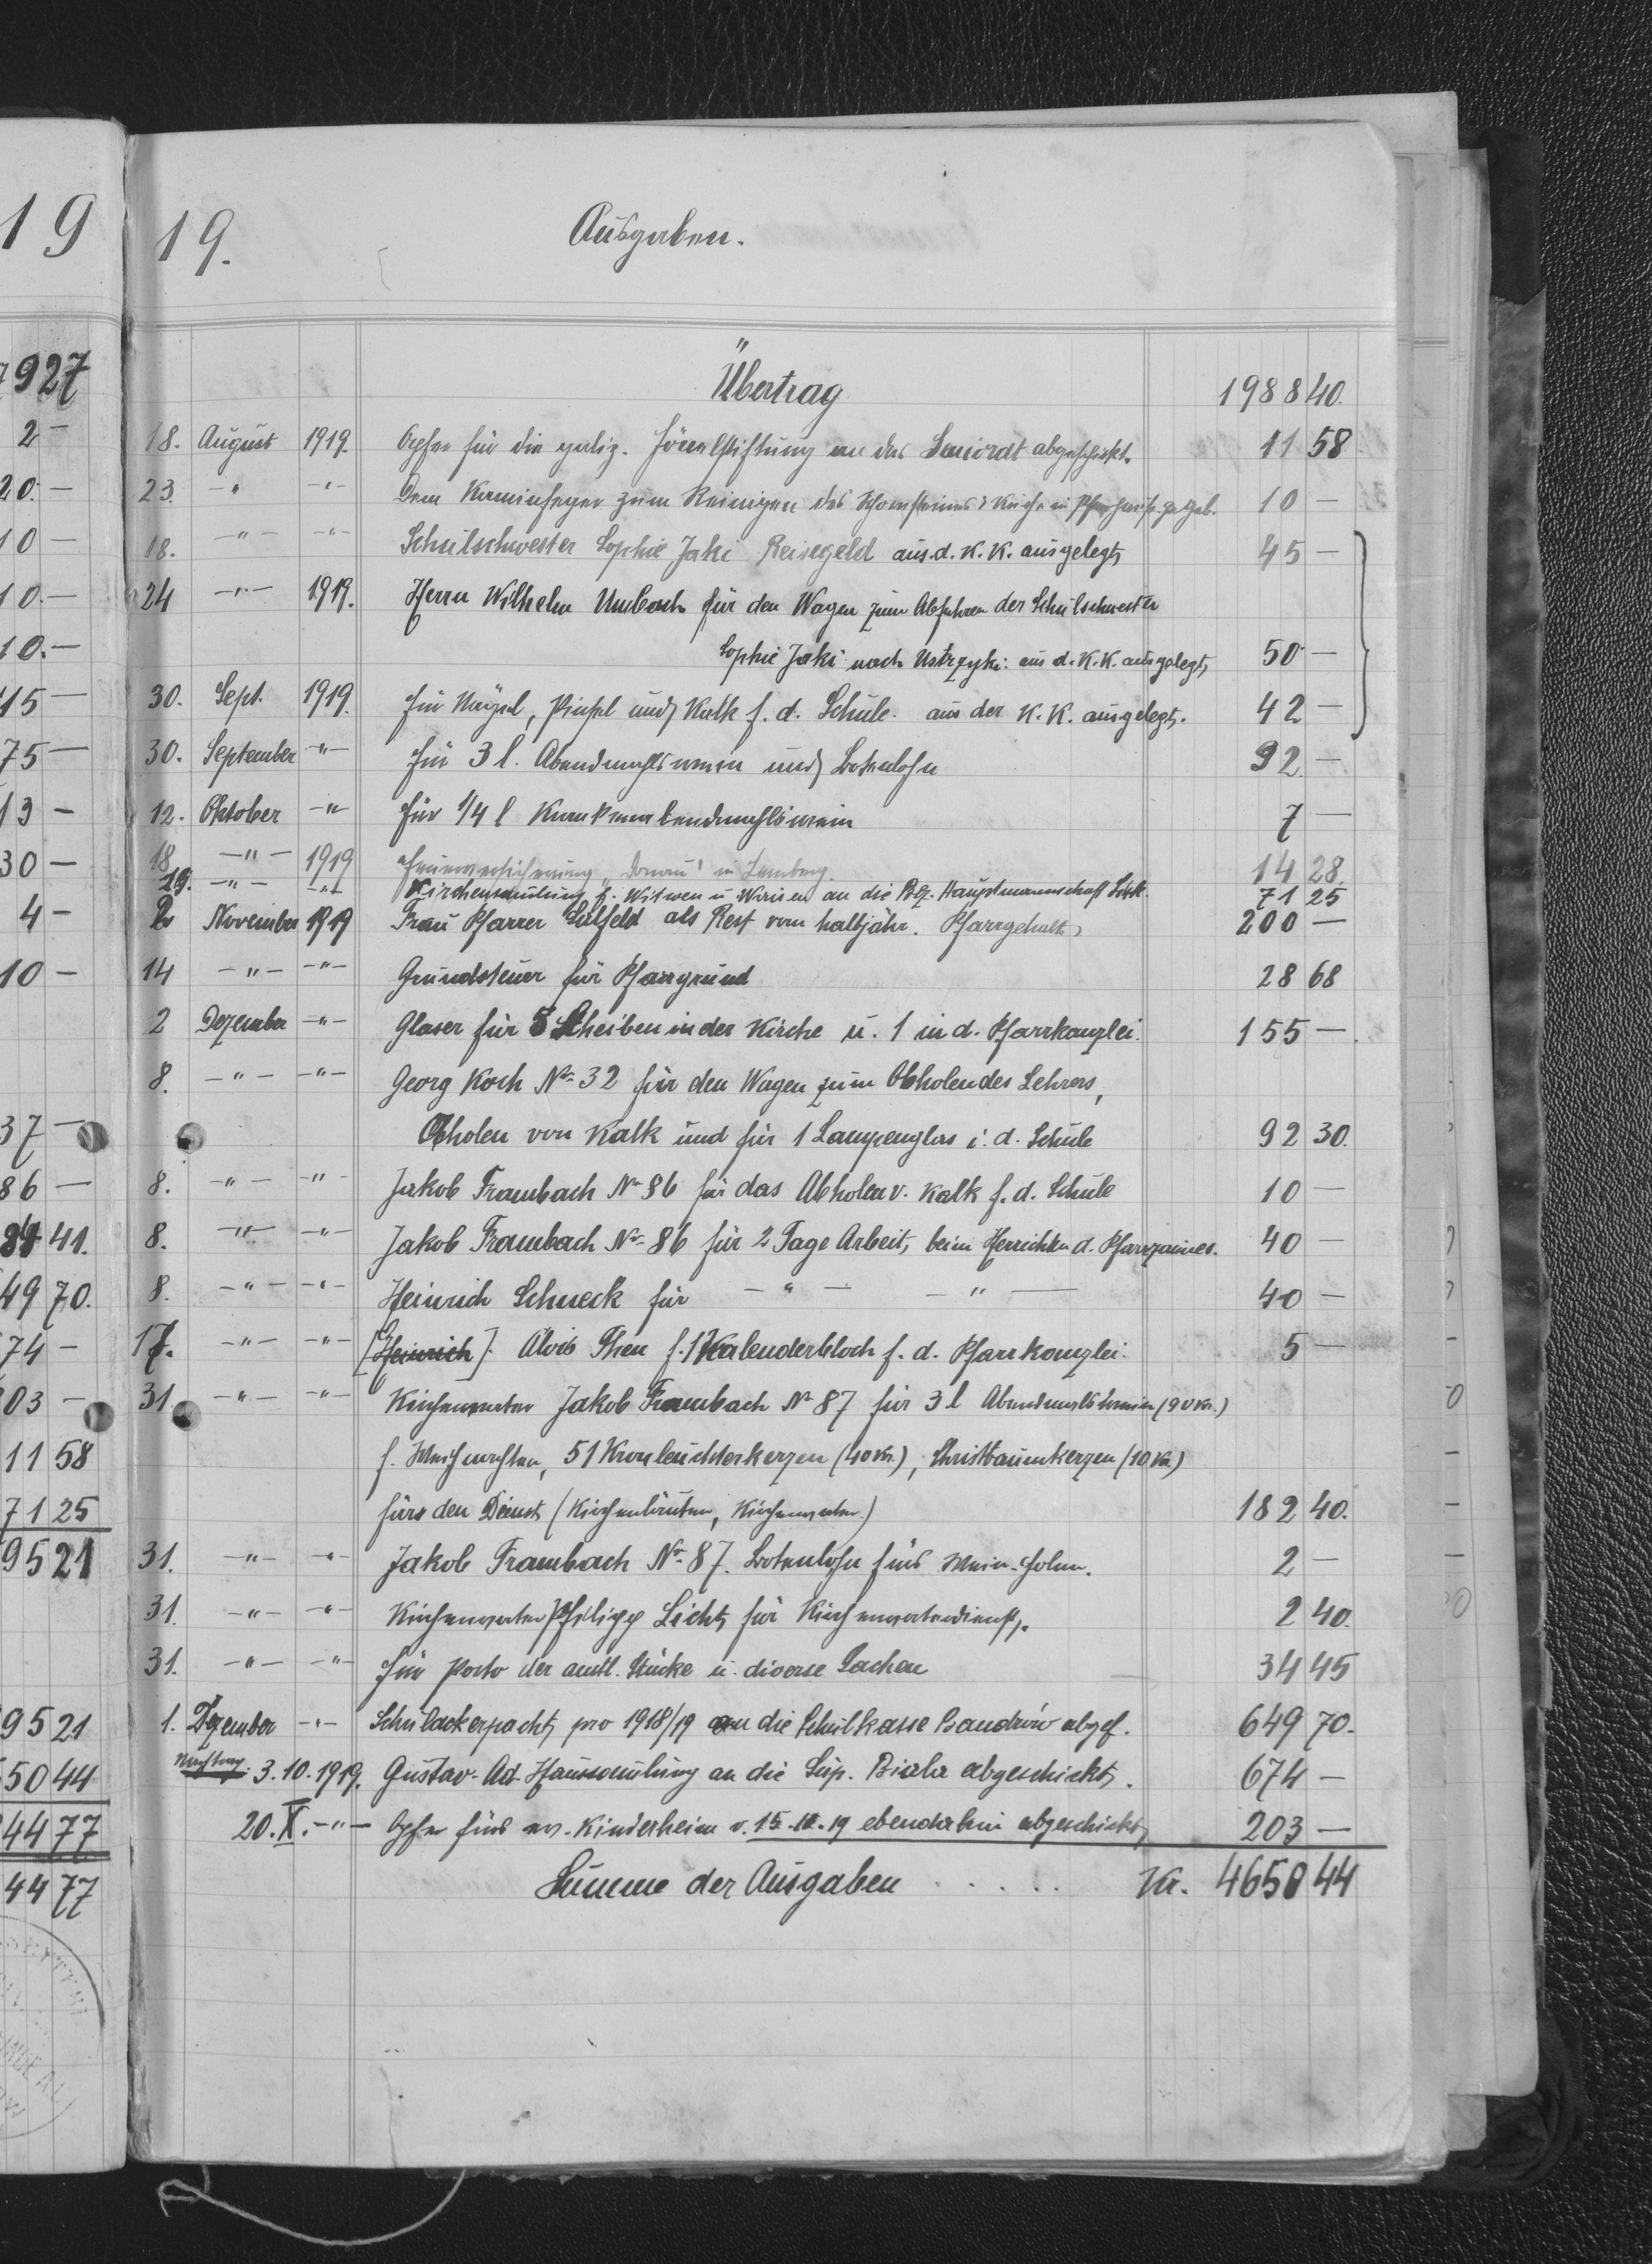 19
927
2 —
20. —
10 —
10. —
10. —
15 —
75 —
13 —
30 —
4 —
10 —
37 —
86 —
41.
49 70.
74 —
03 —
11 58
71 25
95 21
95 21
50 44
44 77
44 77
19. Ausgaben.
Übertrag 1988 40.
18. August 1919. Opfer für die galiz. stiftung an das Seniorat abgeschickt. 11 58
23. -"- -"- Dem Kaminfeger zum Reinigen des Schornsteines i. Pfarrhause 10 —
18. -"- -"- Schulschwester Sophie Jaki Reisegeld aus d. K. K. ausgelegt 45 —
24 -"- 1919. Herrn Wilhelm Umbach für den Wagen zum Abfahren der Schulschwester
Sophie Jaki nach Ustrzyki aus d. K. K. ausgelegt, 50 —
30. Sept. 1919. für Nägel, Pinsel und Kalk f. d. Schule aus der K. K. ausgelegt. 42 —
30. September -"- für 3 l. Abendmahlswein und Botenlohn 92 —
12. Oktober -"- für 1/4 l Krankenabendmahlswein 7 —
18. -"- 1919 Feuerversicherung "Donau" in Lemberg. 14 28
19. -"- -"- Kirchensamlung f. Witwen u Waisen an die Bez. Hauptmannschaft 71 25
2. November 1919 Frau Pfarrer als Rest vom halbjähr. Pfarrgehalt 200 —
14 -"- -"- Grundsteuer für Pfarrgrund 28 68
2 Dezember -"- Glaser für 5 Scheiben in der Kirche u. 1 in d. Pfarrkanzlei. 155 —
8. -"- -"- Georg Koch No 32 für den Wagen zum Abholen des Lehrers,
Abholen von Kalk und für 1 Lampenglas i. d. Schule 92 30.
8. -"- -"- Jakob Frambach No 86 für das Abholen v. Kalk f. d. Schule 10 —
8. -"- -"- Jakob Frambach No 86 für 2 Tage Arbeit, beim Herrichten d. Pfarrzaunes. 40 —
8. -"- -"- Heinrich Schneck für -"- -"- 40 —
17. -"- -"- [Heinrich]. Alois Then f. 1 Kalenderbloch f. d. Pfarrkanzlei. 5 —
31. -"- -"- Kirchenvater Jakob Frambach No 87 für 3 l Abendmahlswein (90 Kr.)
f. Weihnachten, 51 Kronleuchterkerzen (40 Kr.), Christbaumkerzen (10 Kr)
fürs den Dienst (Kirchenläuten, Kirchenvater.) 182 40.
31. -"- -"- Jakob Frambach No 87. Botenlohn fürs Wein-holen. 2 —
31. -"- -"- Kirchenvater Philipp Licht, für Kirchenvaterdienst. 2 40.
31. -"- -"- für Porto der amtl. Stücke u. diverse Sachen 34 45
1. Dezember -"- Schulackerpacht, pro 1918/19 an die Schulkasse Bandrów abgef. 649 70.
Nachtrag: 3.10.1919. Gustav-Ad-Haussamlung an die Sup. Biala abgeschickt. 674 —
20. X. -"- Opfer fürs ev. Kinderheim v. 15.10.19 ebendahin abgeschickt, 203 —
Summe der Ausgaben . . . . . Kr. 4650 44